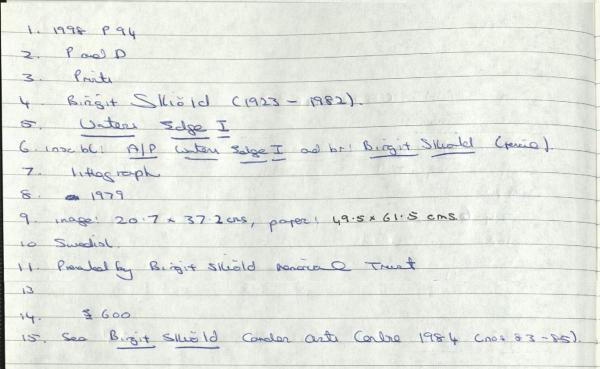 1. 1998 P 94
2. P and D
3. Prints
4. Birgit Skiöld (1923 - 1982).
5. Waters Edge I
6. insc bl: A/P Waters Edge I and br: Birgit Skiöld (pencil).
7. lithograph
8. 1979
9. image: 20.7 x 37.2 cms, paper: 49.5 x 61.5 cms
10 Swedish.
11. Presented by Birgit Skiöld Memorial Trust
13
14. £600
15. See Birgit Skiöld Camden Arts Centre 1984 (nos 83-85).